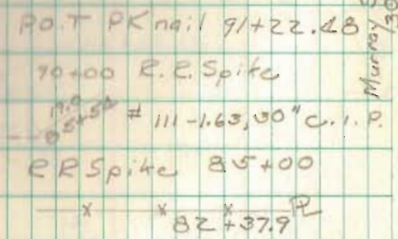 P.O.T PK nail 91+22.48
90+00 R.R. Spike
# 111-1.63, 30" C.I.P.
RR Spike 85+00
82+37.9 PL
Murray